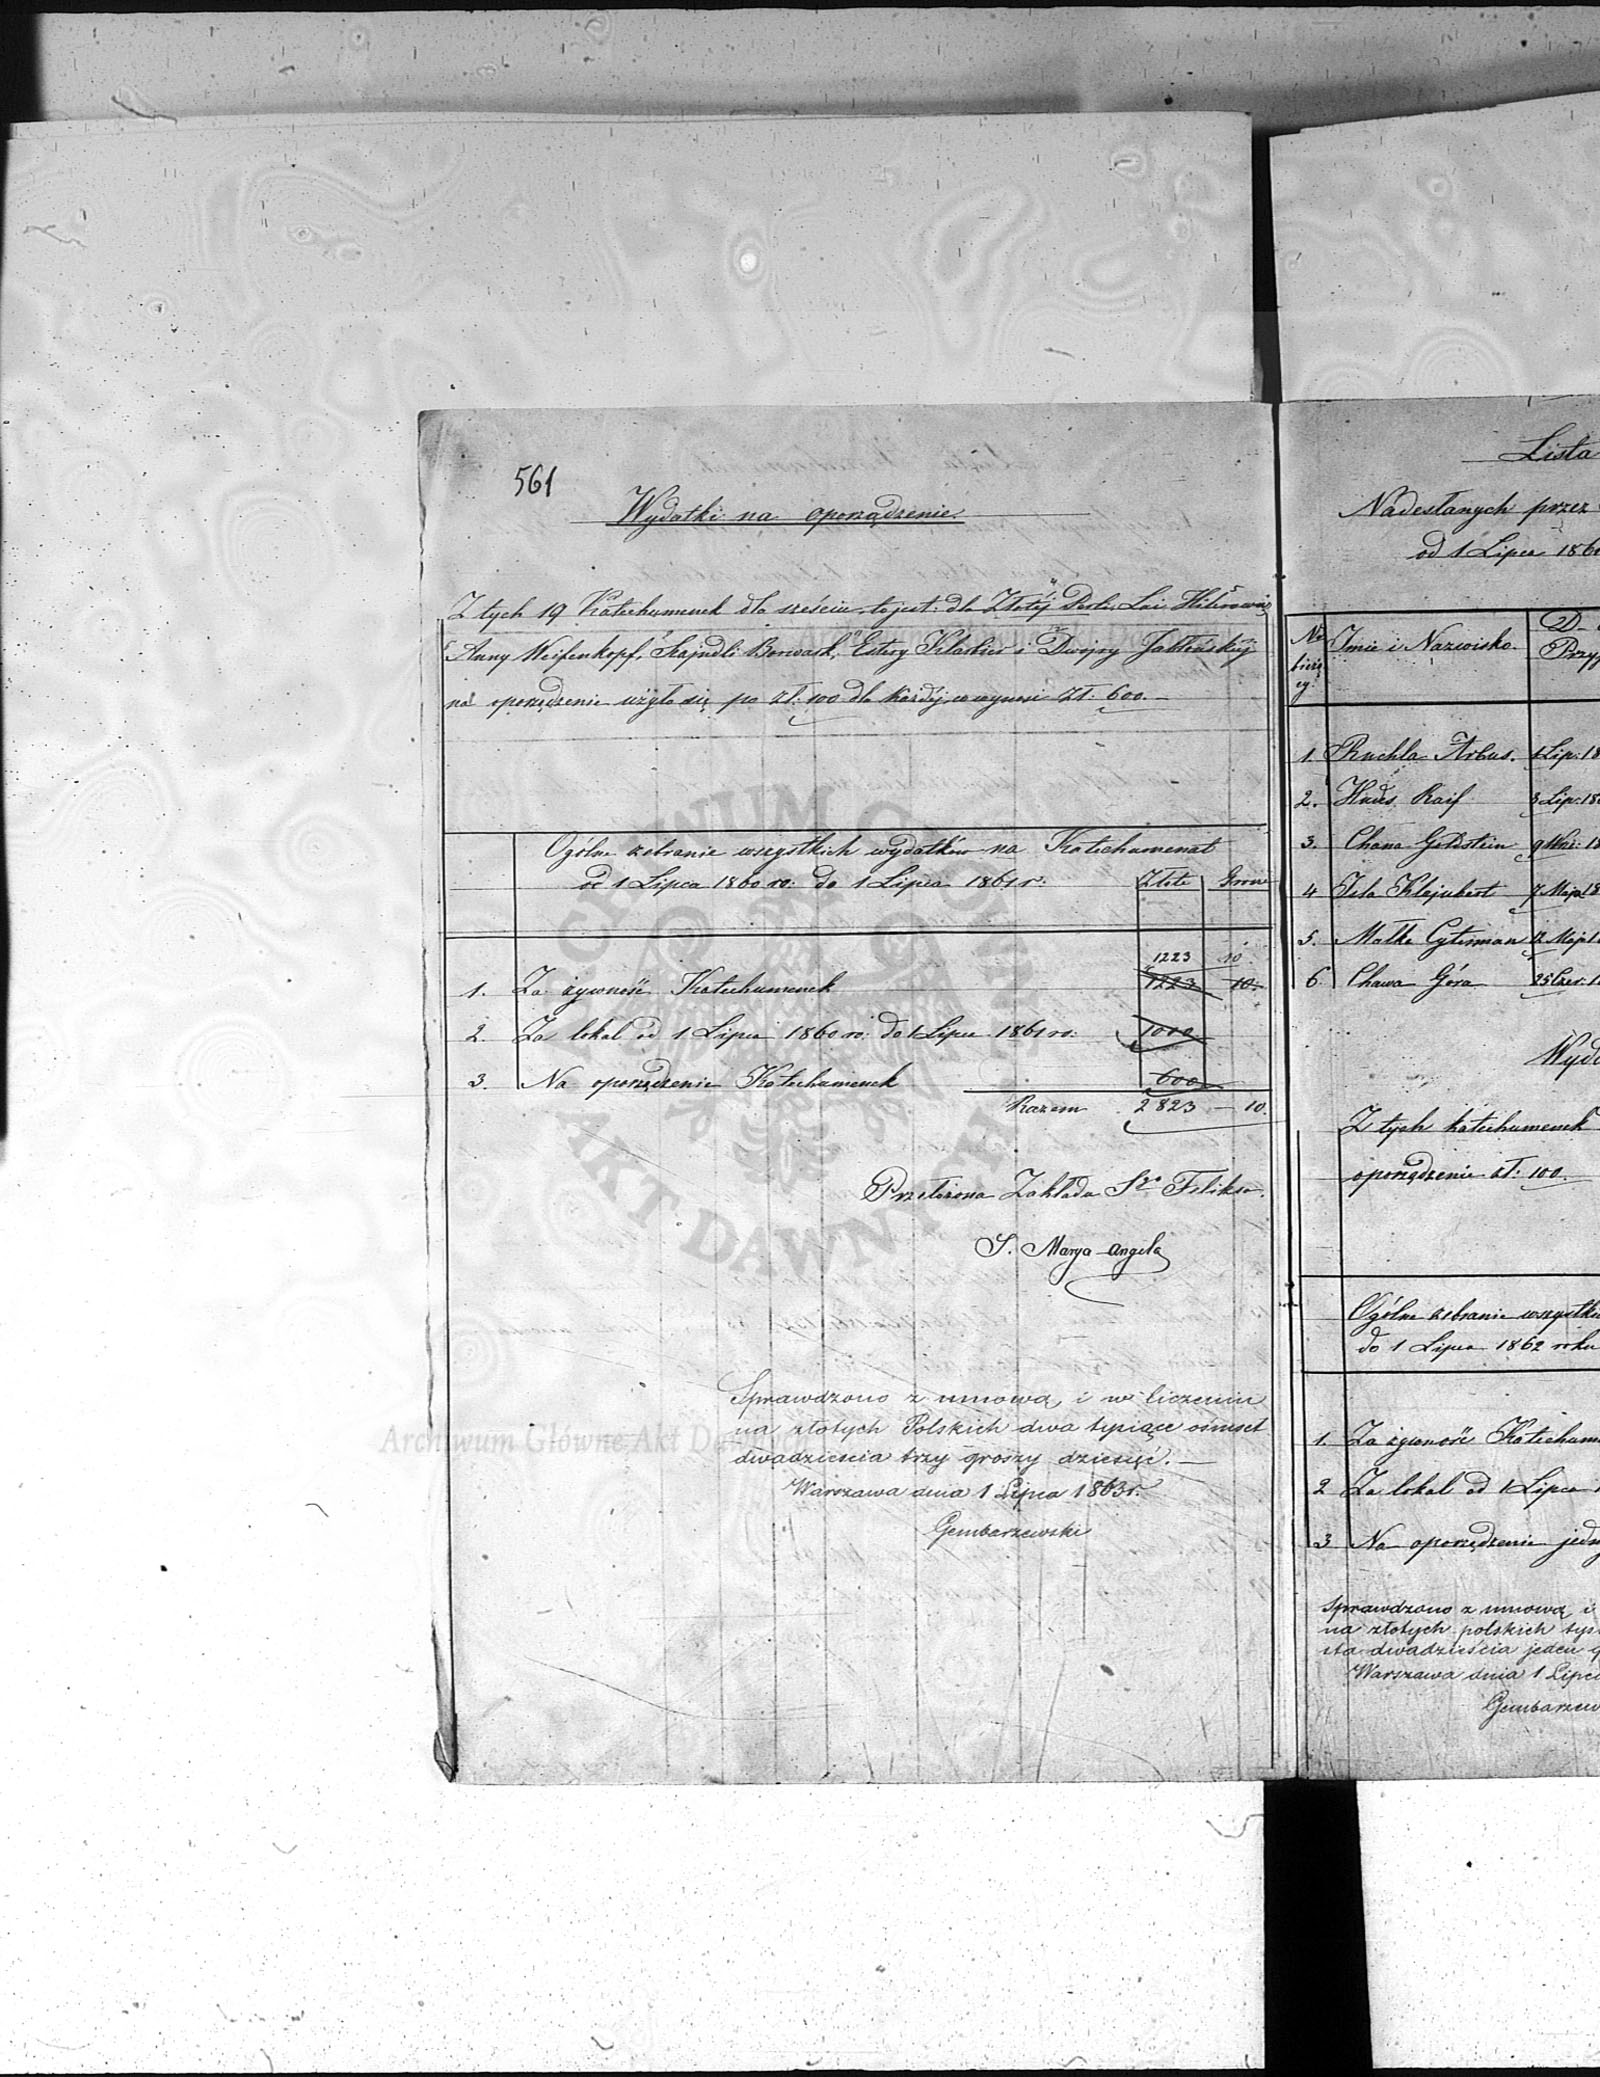 561
Wydatki na oporządzenie.
Z tych 19 Katechumenek dla sześciu, to jest: dla Złotéj Perli, Lai
Anny Weifenkopf, Szajndli Borwark, Estery i Dwojry Jabłońskiéj
na oporządzenie użyło się po zł: 100 dla każdéj, co wynosi Zł: 600. —
Ogólne zebranie wszystkich wydatków na Katechumenat
od 1 Lipca 1860 ro: do 1 Lipca 1861 r: Złote Grosze
1223 10
1. Za żywność Katechumenek 1223 10
2. Za lokal od 1 Lipca 1860 ro: do 1 Lipca 1861 ro: 1000
3. Na oporządzenie Katechumenek 600
Razem 2823 — 10.
Przełożona Zakładu Sgo Feliksa.
S. Marya Angela
Sprawdzono z umową i w liczeniu
na złotych Polskich dwa tysiące ośmset
dwadzieścia trzy groszy dziesięć. —
Warszawa dnia 1 Lipca 1863 r.
Gembarzewski
Lista
Nadesłanych przez
od 1 Lipca 186
No bieżący Imie i Nazwisko. D
Przy
1. Ruchla Arbus. 1 Lip: 18
2. Hudes Raif 3 Lip: 18
3. Chana Goldstein 9 18
4 Klajnbert 7 Maja 18
5. Małka Cytrman 12 Maja 1
6 Chawa Góra 25 Czer: 1
Wyd
Z tych katechumenek
oporządzenie zł: 100.
Ogólne zebranie wszystki
do 1 Lipca 1862 roku
1. Za żywność Katechum
2 Za lokal od 1 Lipca 1
3 Na oporządzenie jedn
Sprawdzono z umową i
na złotych polskich tys
sta dwadzieścia jeden g
Warszawa dnia 1 Lipca
Gembarzew
ARCHIWUM GŁÓWNE AKT DAWNYCH
Archiwum Główne Akt Dawnych